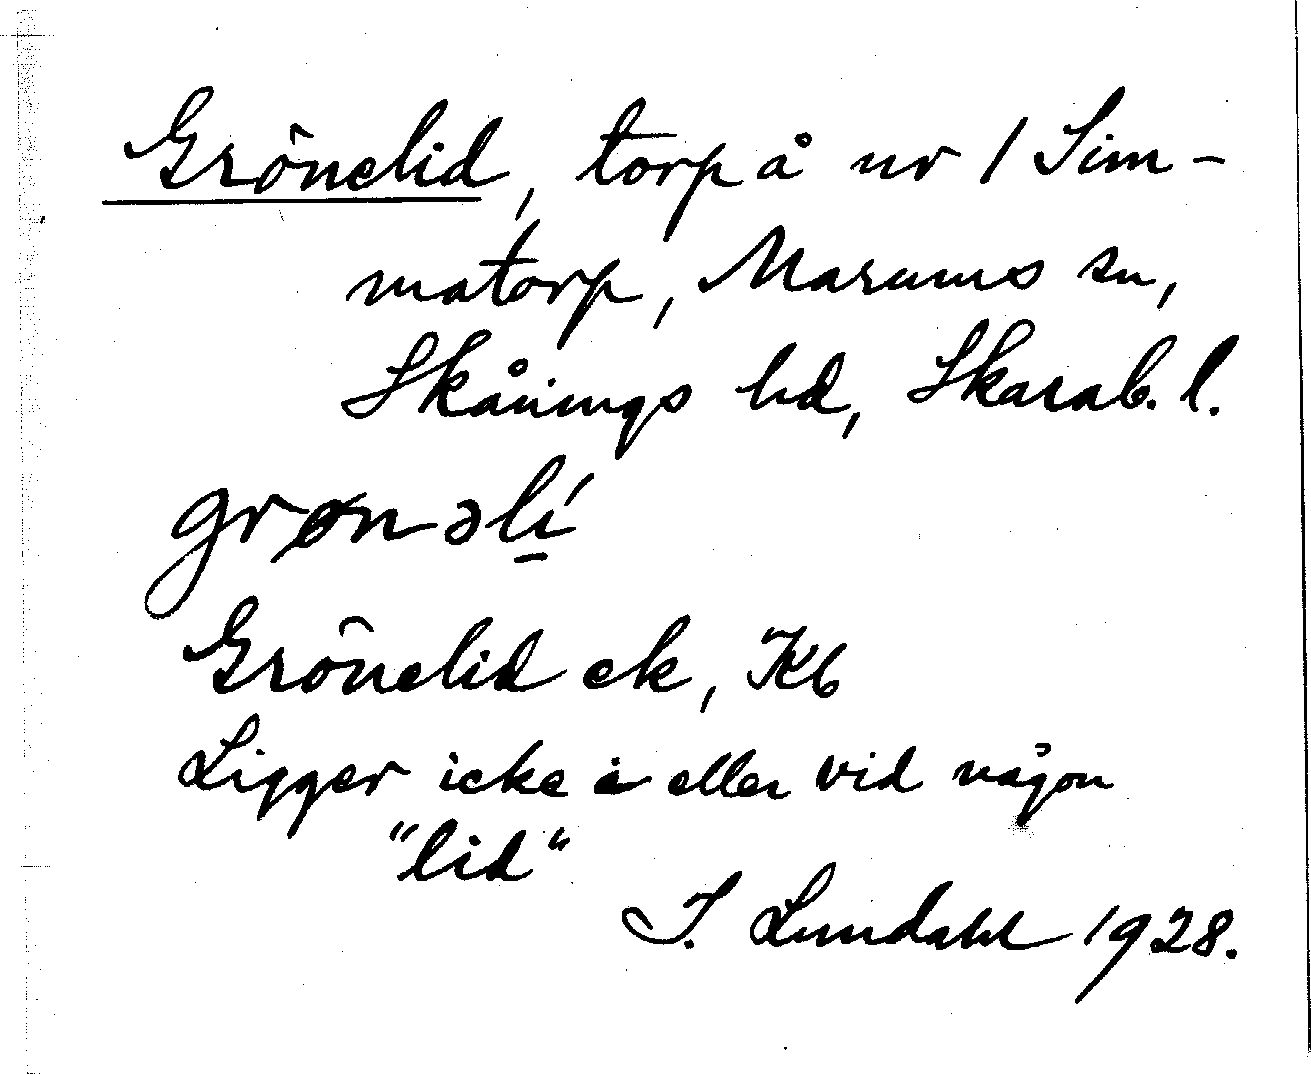 Grönelid, torp å nr 1 Sim-
matorp, Marums sn,
Skånings hd, Skarab. l.
grønəlí̱
Grönelid ek, Kb
Ligger icke å eller vid någon
"lid"
I. Lundahl 1928.